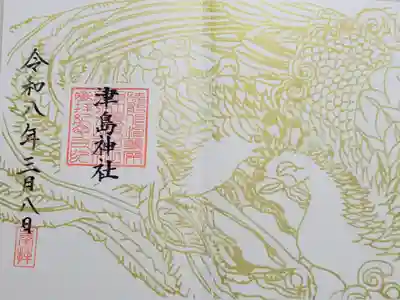 津島神社
令和八年三月八日
奉拝